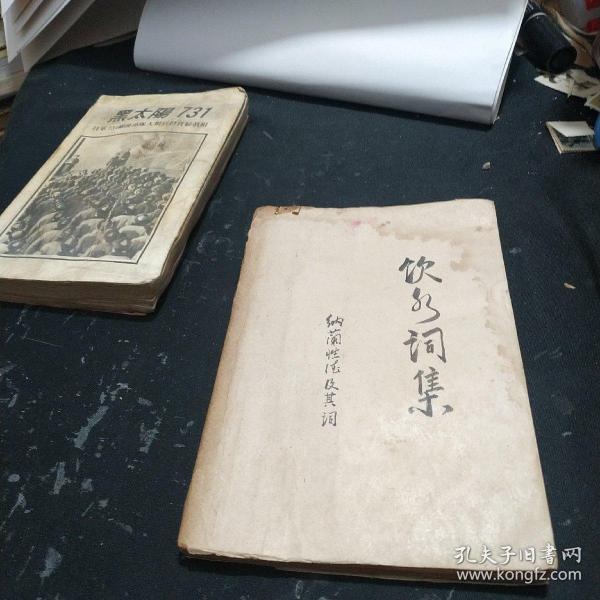 黑太陽 731
饮水词集
納蘭性德及其词
孔夫子旧書网
www.kongfz.com